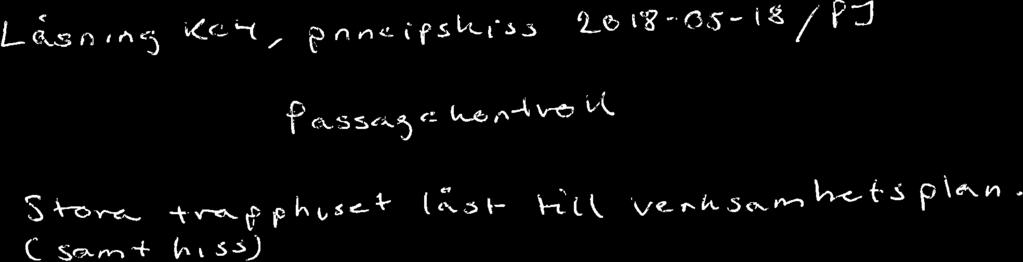 Låsning KC4, principskiss 2018-05-18/PJ
Passagekontroll
Stora trapphuset låst till verksamhetsplan.
(samt hiss)